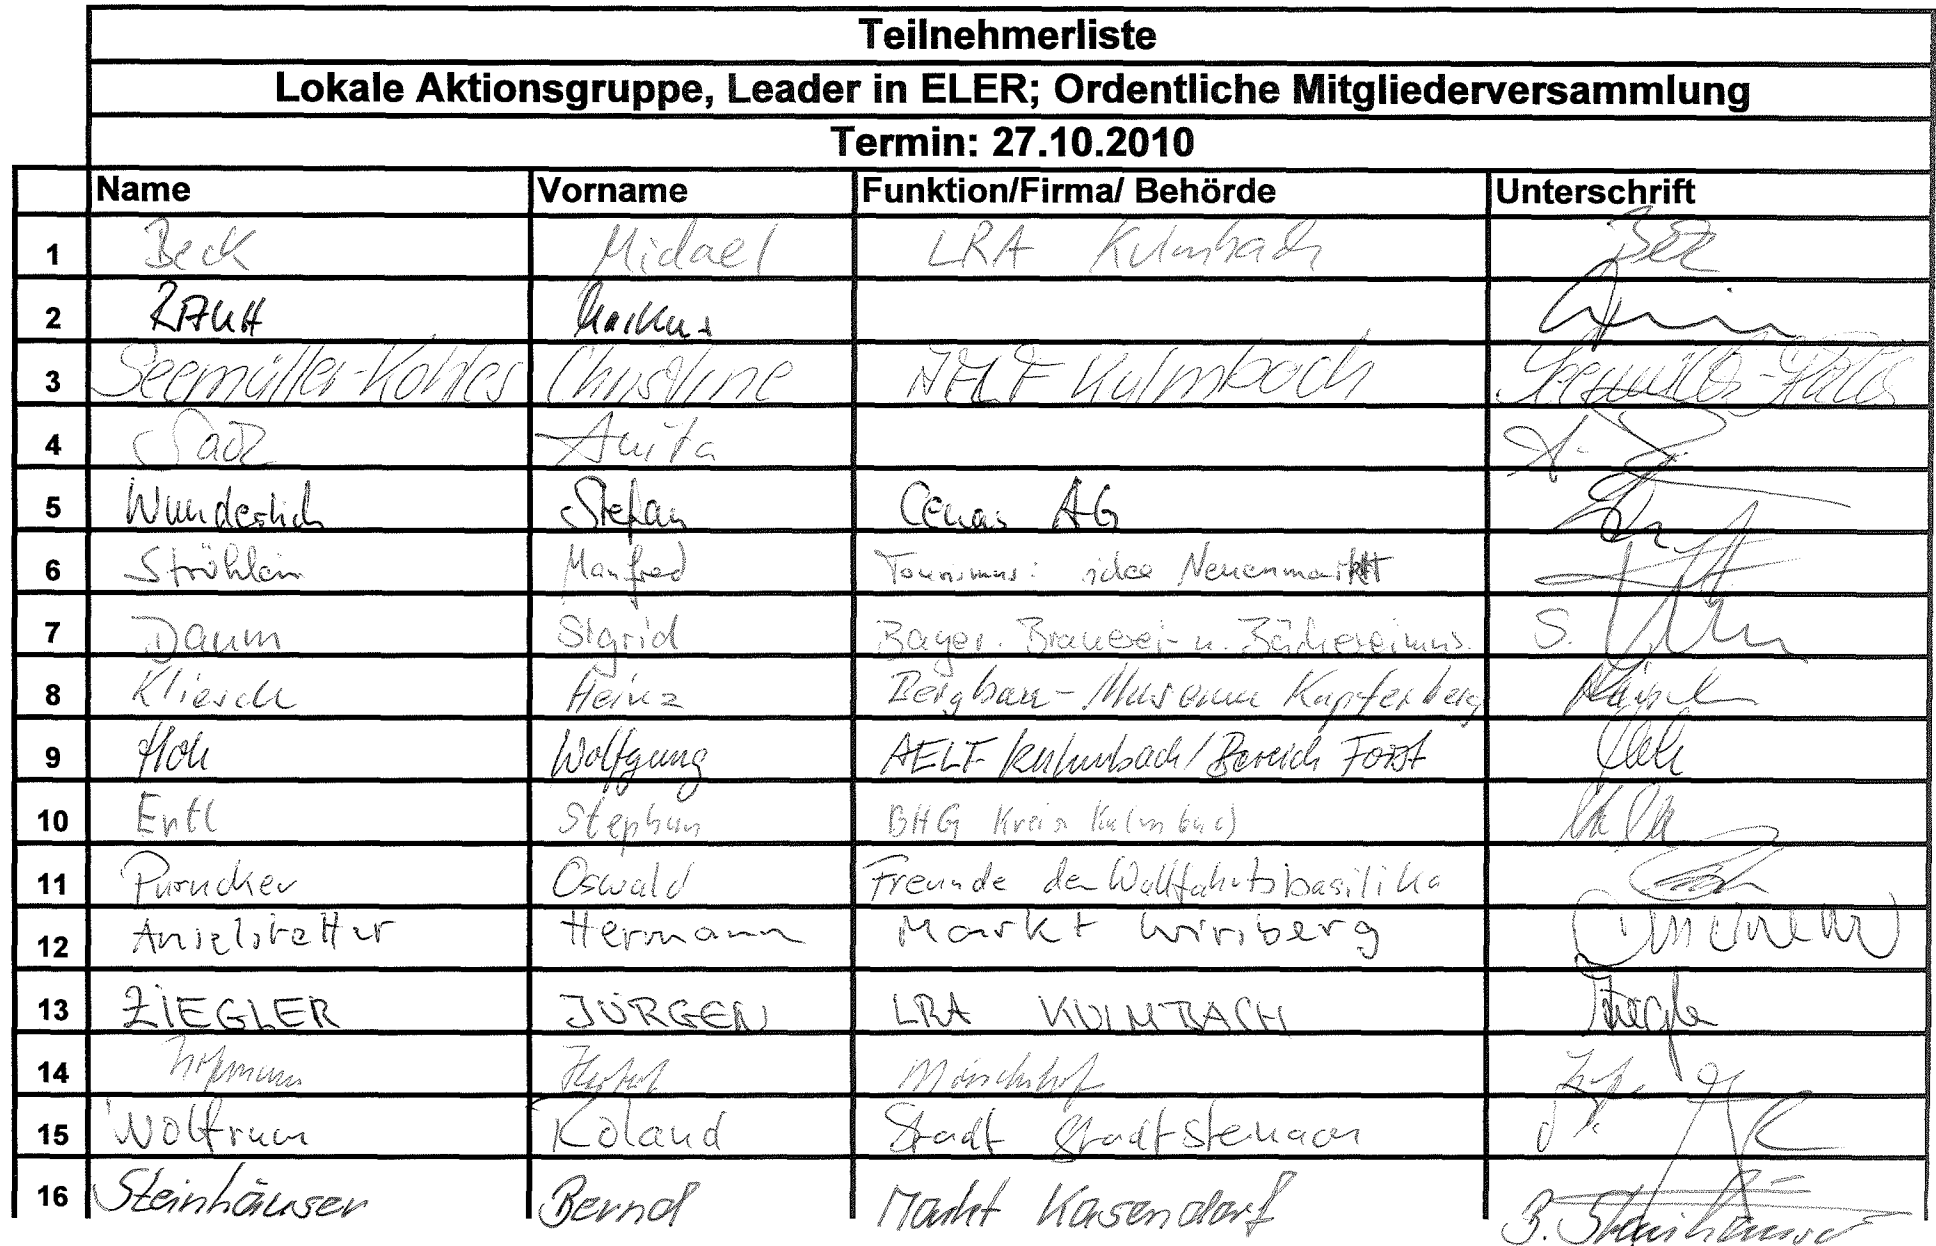 Teilnehmerliste
Lokale Aktionsgruppe, Leader in ELER; Ordentliche Mitgliederversammlung
Termin: 27.10.2010
Name Vorname Funktion/Firma/ Behörde Unterschrift
1 Beck Michael LRA Kulmbach
2 RAUH Markus
3 Seemüller-Kohles Christine AELF Kulmbach
4 Sack Anita
5 Wunderlich Stefan Cenas AG
6 Ströhlein Manfred Tourismus: idee Neuenmarkt
7 Daum Sigrid Bayer. Brauerei- u. Bäckereimus. S.
8 Kliesch Heinz Bergbau-Museum Kupferberg
9 Hoh Wolfgang AELF Kulmbach/Bereich Forst
10 Ertl Stephan BHG Kreis Kulmbach
11 Purucker Oswald Freunde der Wallfahrtsbasilika
12 Anselstetter Hermann Markt Wirsberg
13 ZIEGLER JÜRGEN LRA KULMBACH Ziegler
14 Hofmann
15 Wolfrum Roland Stadt Stadtsteinach
16 Steinhäuser Bernd Markt Kasendorf B. Steinhäuser